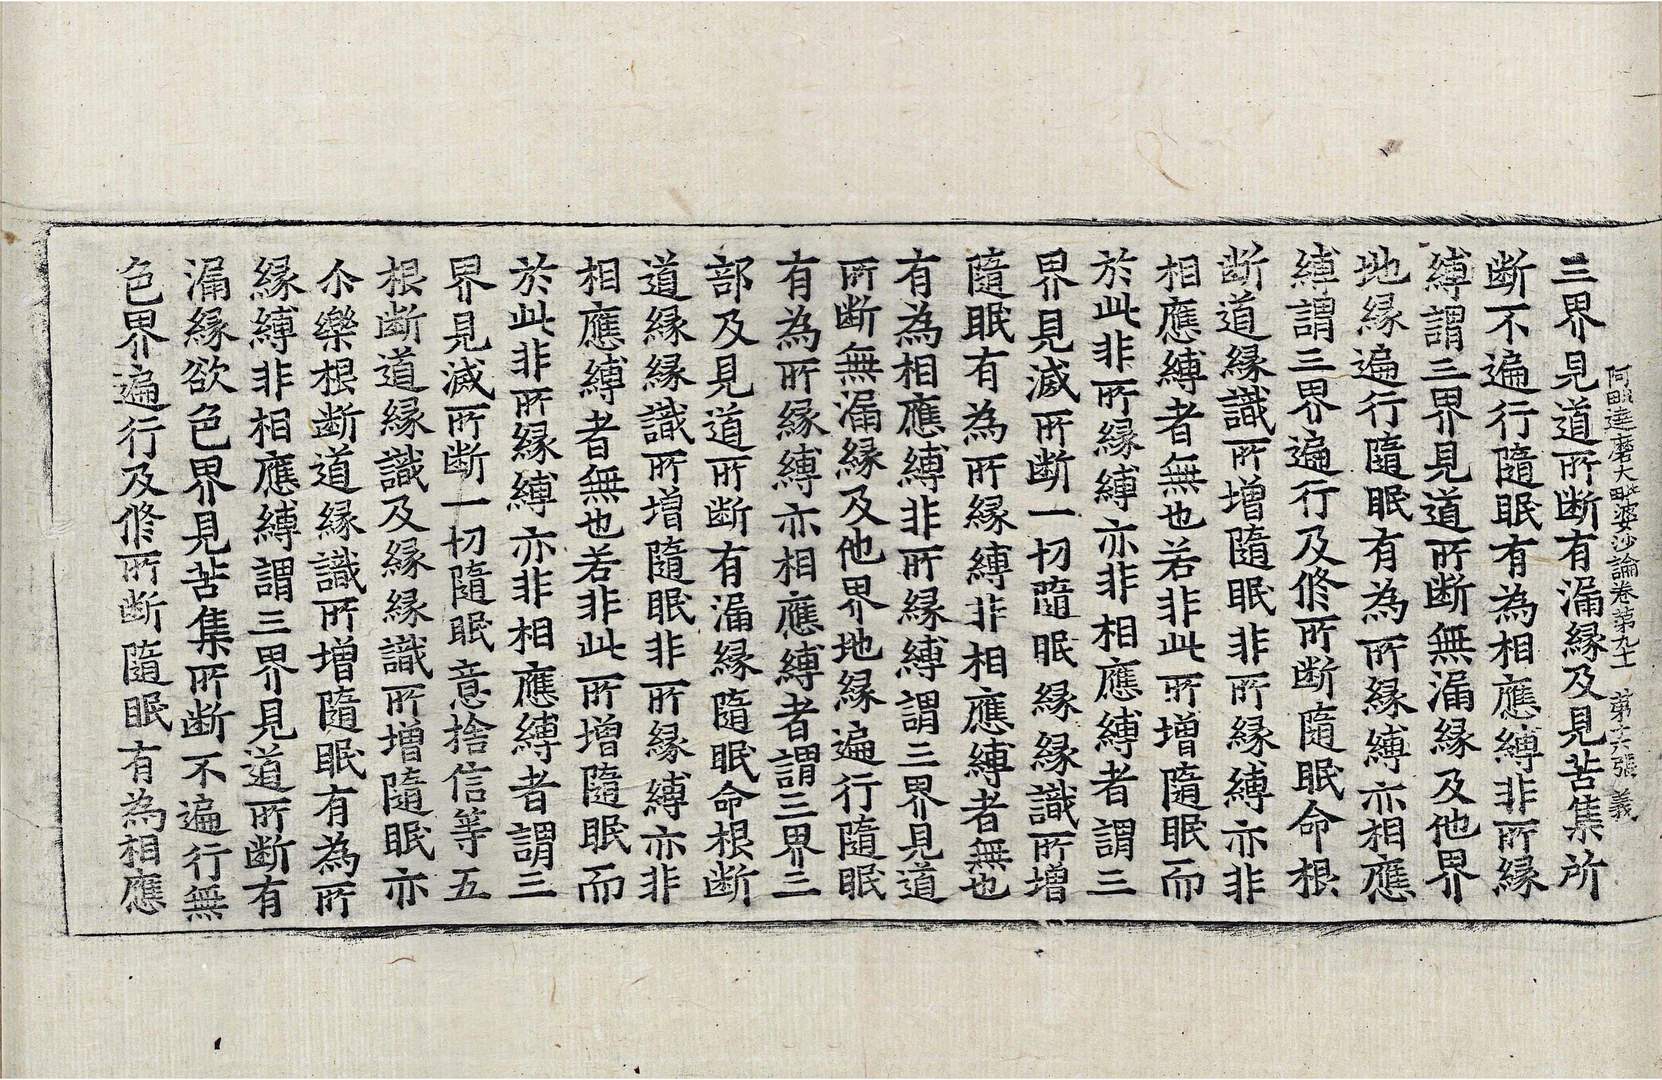 阿毗達磨大毗婆沙論卷第九十 第十六張 義
三界見道所斷有漏緣及見苦集所
斷不遍行隨眠有為相應縛非所緣
縛謂三界見道所斷無漏緣及他界
地緣遍行隨眠有為所緣縛亦相應
縛謂三界遍行及修所斷隨眠命根
斷道緣識所增隨眠非所緣縛亦非
相應縛者無也若非此所增隨眠而
於此非所緣縛亦非相應縛者謂三
界見滅所斷一切隨眠緣緣識所增
隨眠有為所緣縛非相應縛者無也
有為相應縛非所緣縛謂三界見道
所斷無漏緣及他界地緣遍行隨眠
有為所緣縛亦相應縛者謂三界三
部及見道所斷有漏緣隨眠命根斷
道緣緣識所增隨眠非所緣縛亦非
相應縛者無也若非此所增隨眠而
於此非所緣縛亦非相應縛者謂三
界見滅所斷一切隨眠意捨信等五
根斷道緣識及緣緣識所增隨眠亦
尒樂根斷道緣識所增隨眠有為所
緣縛非相應縛謂三界見道所斷有
漏緣欲色界見苦集所斷不遍行無
色界遍行及修所斷隨眠有為相應